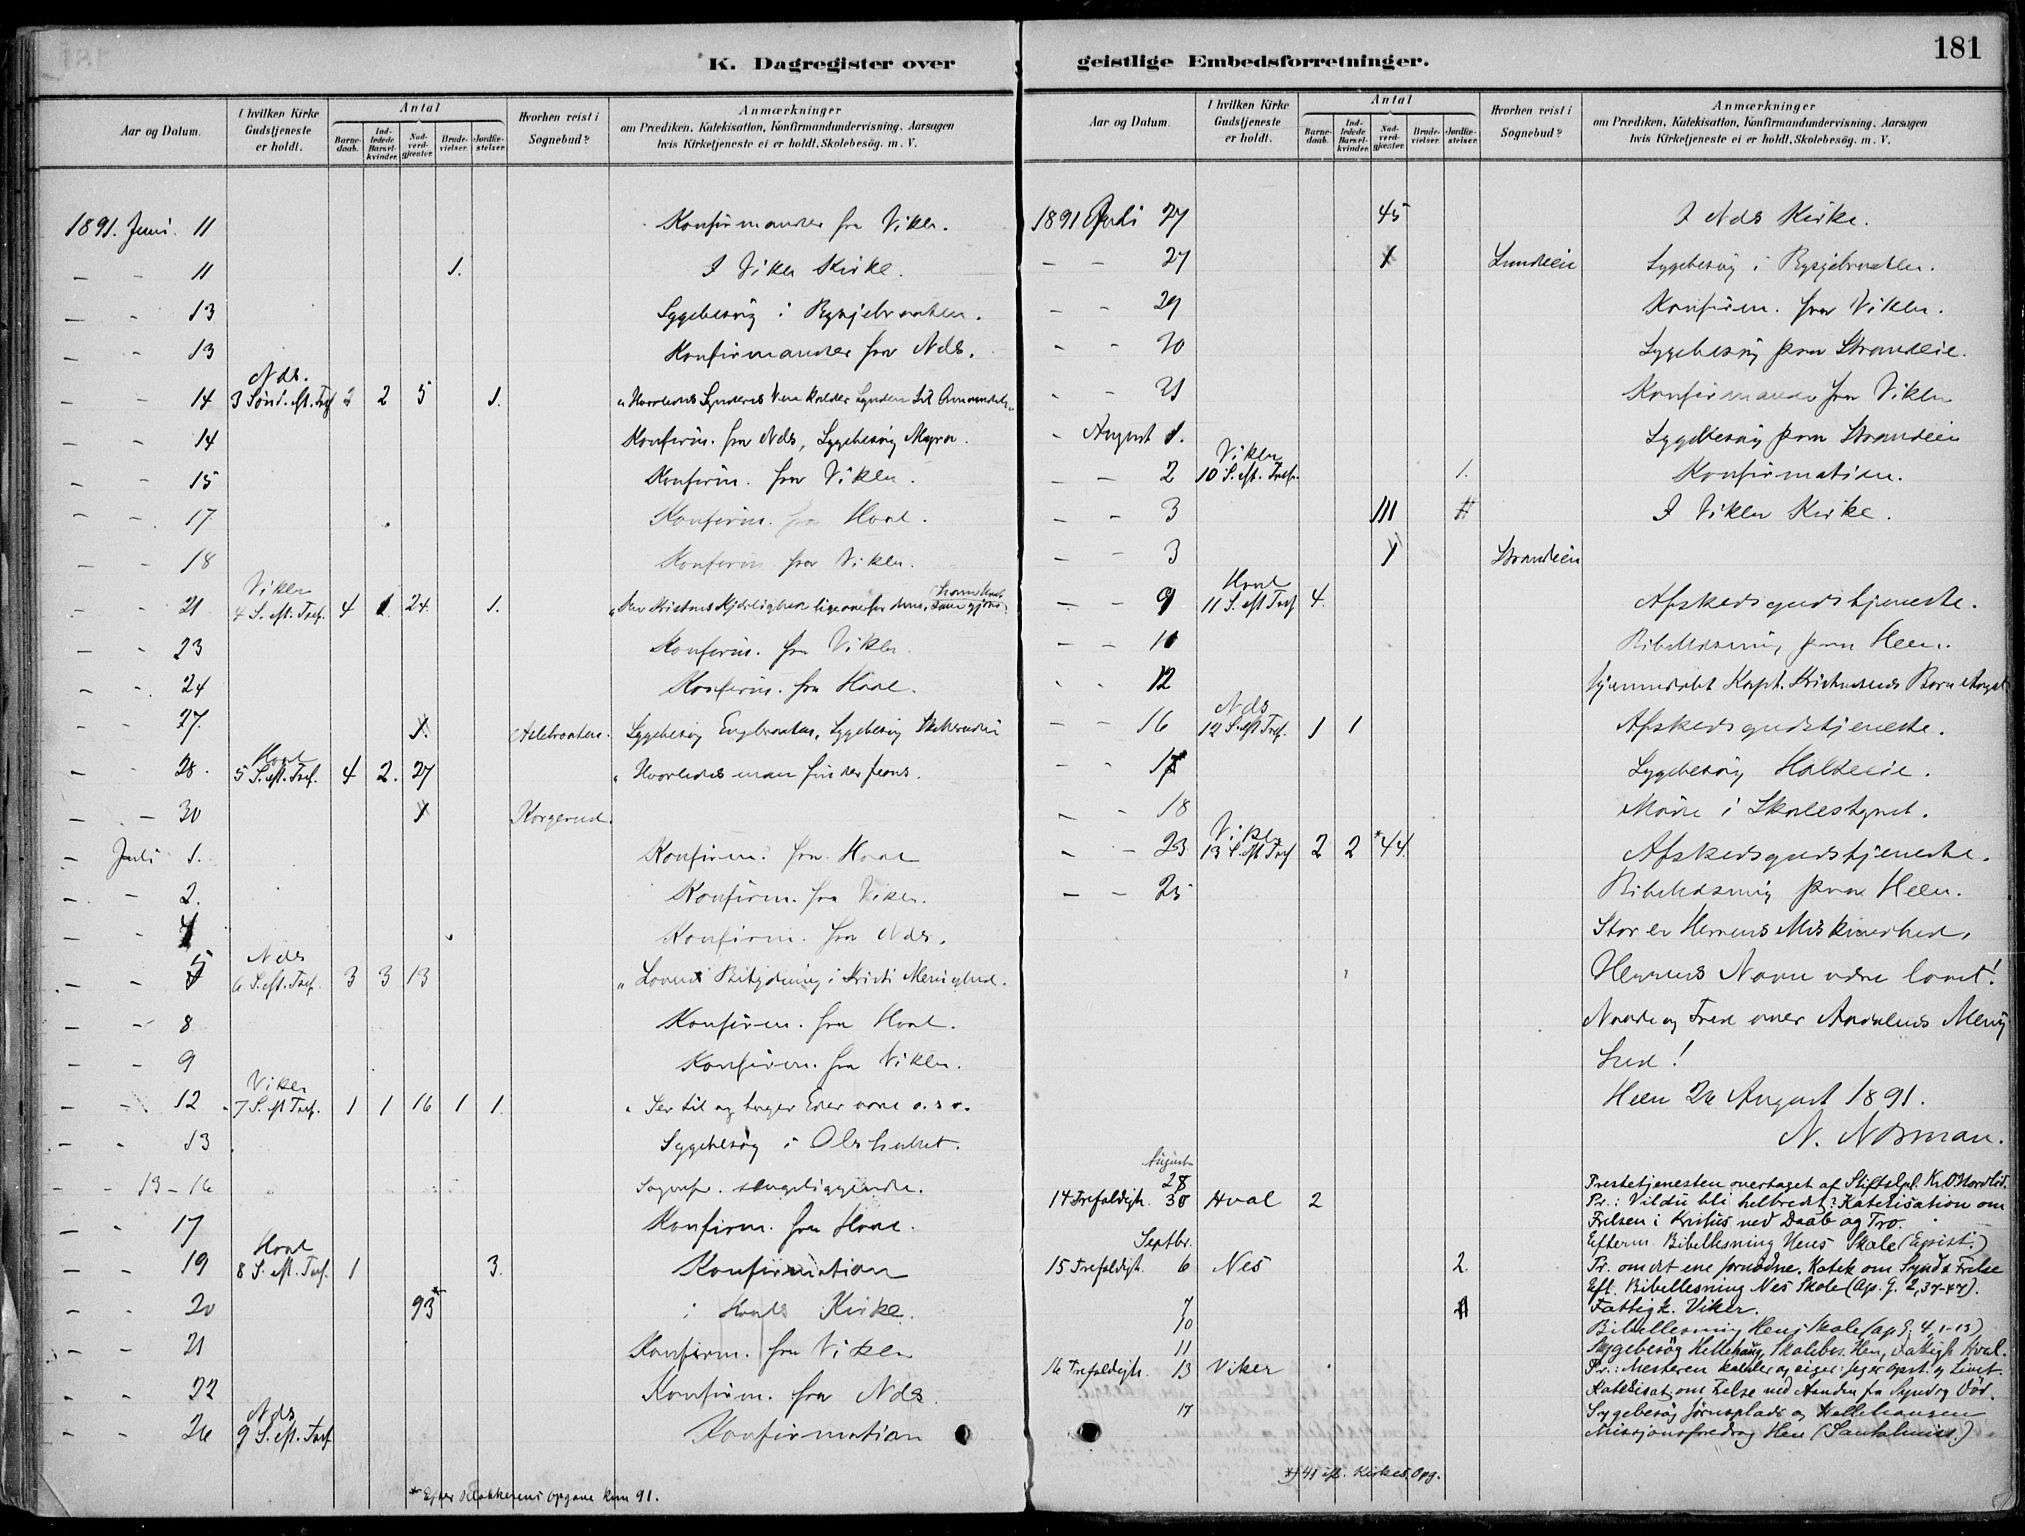 181
K. Dagregister over geistlige Embedsforretninger.
Aar og Datum.
I hvilken Kirke Gudstjeneste er holdt.
Antal
Barne-daab.
Ind-ledede Barsel-kvinder.
Nad-verd-gjester.
Brude-vielser.
Jordfæ-stelser.
Hvorhen reist i Sognebud?
Anmærkninger
om Prædiken, Katekisation, Konfirmandundervisning, Aarsagen
hvis Kirketjeneste ei er holdt, Skolebesög. m. V.
1891. Juni. 11 Konfirmander fra Viker.
— - 11 1. I Viker Kirke.
— - 13 Sygebesøg i Bysjebraaten.
— - 13 Konfirmander fra Næs.
Næs.
- - 14 3 Sønd. eft. Tref 2 2 5 1. "Hvorledes Synderes Ven kalder Synden til Omvendelse"
- - 14 Konfirm. fra Næs, Sygebesøg Myra.
- - 15 Konfirm. fra Viker.
- - 17. Konfirm. fra Hval.
- - 18 Konfirm. fra Viker.
Viker
- - 21 4 S. eft. Tref. 4 1 24. 1. "Den Kristnes Kjærlighed ligeoverfor dens,
- - 23 Konfirm. fra Viker.
- - 24 Konfirm. fra Hval.
- - 27. 1. Aslebraaten. Sygebesøg Engebraaten, Sygebesøg
Hval
- - 28. 5 S. eft. Tref. 4 2. 27 "Hvorledes man finder Jesus.
- - 30 1 Korgerud.
- Juli 1. Konfirm. fra Hval
- - 2. Konfirm. fra Viker.
- - 4 Konfirm. fra Næs.
Næs
- - 5 6 S. eft. Tref. 3 3 13 "Lovens Betydning i Kristi Menighed.
- - 8 Konfirm. fra Hval.
- - 9 Konfirm. fra Viker.
Viker
- - 12 7 S. eft Tref. 1 1 16 1 1. "Ser til og tager Eder vare o. s. v.
- - 13 Sygebesøg i Olshullet.
- - 13-16 Sognepr. sengeliggende.
- - 17 Konfirm. fra Hval.
Hval
- - 19 8 S. eft. Tref. 1 3. Konfirmation
- - 20 93* i Hvals Kirke.
- - 21 Konfirm. fra Viker
- - 22 Konfirm. fra Næs.
Næs
- - 26 9 S. eft. Tref Konfirmation
* Efter Klokkerens Opgave kun 91.
Aar og Datum.
I hvilken Kirke Gudstjeneste er holdt.
Antal
Barne-daab.
Ind-ledede Barsel-kvinder.
Nad-verd-gjester.
Brude-vielser.
Jordfæ-stelser.
Hvorhen reist i Sognebud?
Anmærkninger
om Prædiken, Katekisation, Konfirmandundervisning, Aarsagen
hvis Kirketjeneste ei er holdt, Skolebesög. m. V.
1891 Juli 27 45 I Næs Kirke.
— - 27 1 Lundeie Sygebesøg i Bysjebraaten.
— - 29 Konfirm. fra Viker.
- - 30 Sygebesøg paa Strandeie.
- - 31 Konfirmander fra Viker
- August 1. Sygebesøg paa Strandeie
Viker
- - 2 10 S. eft. Tref. 1. Konfirmation.
- - 3 111 I Viker Kirke.
- - 3 1 Strandeie
Hval
- - 9 11 S. eft Tref 4. Afskedsgudstjeneste.
- - 10 Bibellæsning paa Heen.
- - 12 Hjemmedøbt Kapt. Kristensens Barn
Næs
- - 16 12 S. eft Tref. 1 1 Afskedsgudstjeneste.
- - 17 Sygebesøg Haldeie.
- - 18 Møde i Skolestyret.
Viker
- - 23 13 S. eft Tref 2 2 *44. Afskedsgudstjeneste.
— - 25 Bibellæsning paa Heen.
Stor er Herrens Miskundhed,
Herrens Navn være lovet!
Naade og Fred over Aadalens Menig
hed!
Heen 26 August 1891.
N. Norman.
August
28 Prestetjenesten overtaget af Stiftskpl. Kr. O. Nordlid.
14 Trefoldigh. 30 Hval 2 Pr.: Vil du bli helbredet? Katekisation om
Frelsen i Kristus ved Daab og Tro.
Efterm. Bibellesning Hens Skole (Epist.)
Septbr.
15 Trefoldigh. 6 Nes 2. Pr. om det ene fornødne. Katek om Synd & Frelse
Eft. Bibellesning Nes Skole (Ap. G. 2, 37-47).
7 1 Fattigk. Viker.
10 Bibellesning Hens Skole (ap G. 4, 1-13)
11 Sygebesøg Hellehaug, Skolebes. Hen, Fattigk. Hval.
16 Trefoldigh. 13 Viker Pr.: Mesteren kalder og siger: Jeg er Opst. og Livet.
Katekisat. om Frelse ved Aanden fra Synd og Død.
17 Sygebesøg Jørnsplads og Hellehaugen
Missionsforedrag Hen (Santalmiss.)
*) 41 ifl. Kirkes. Opg.